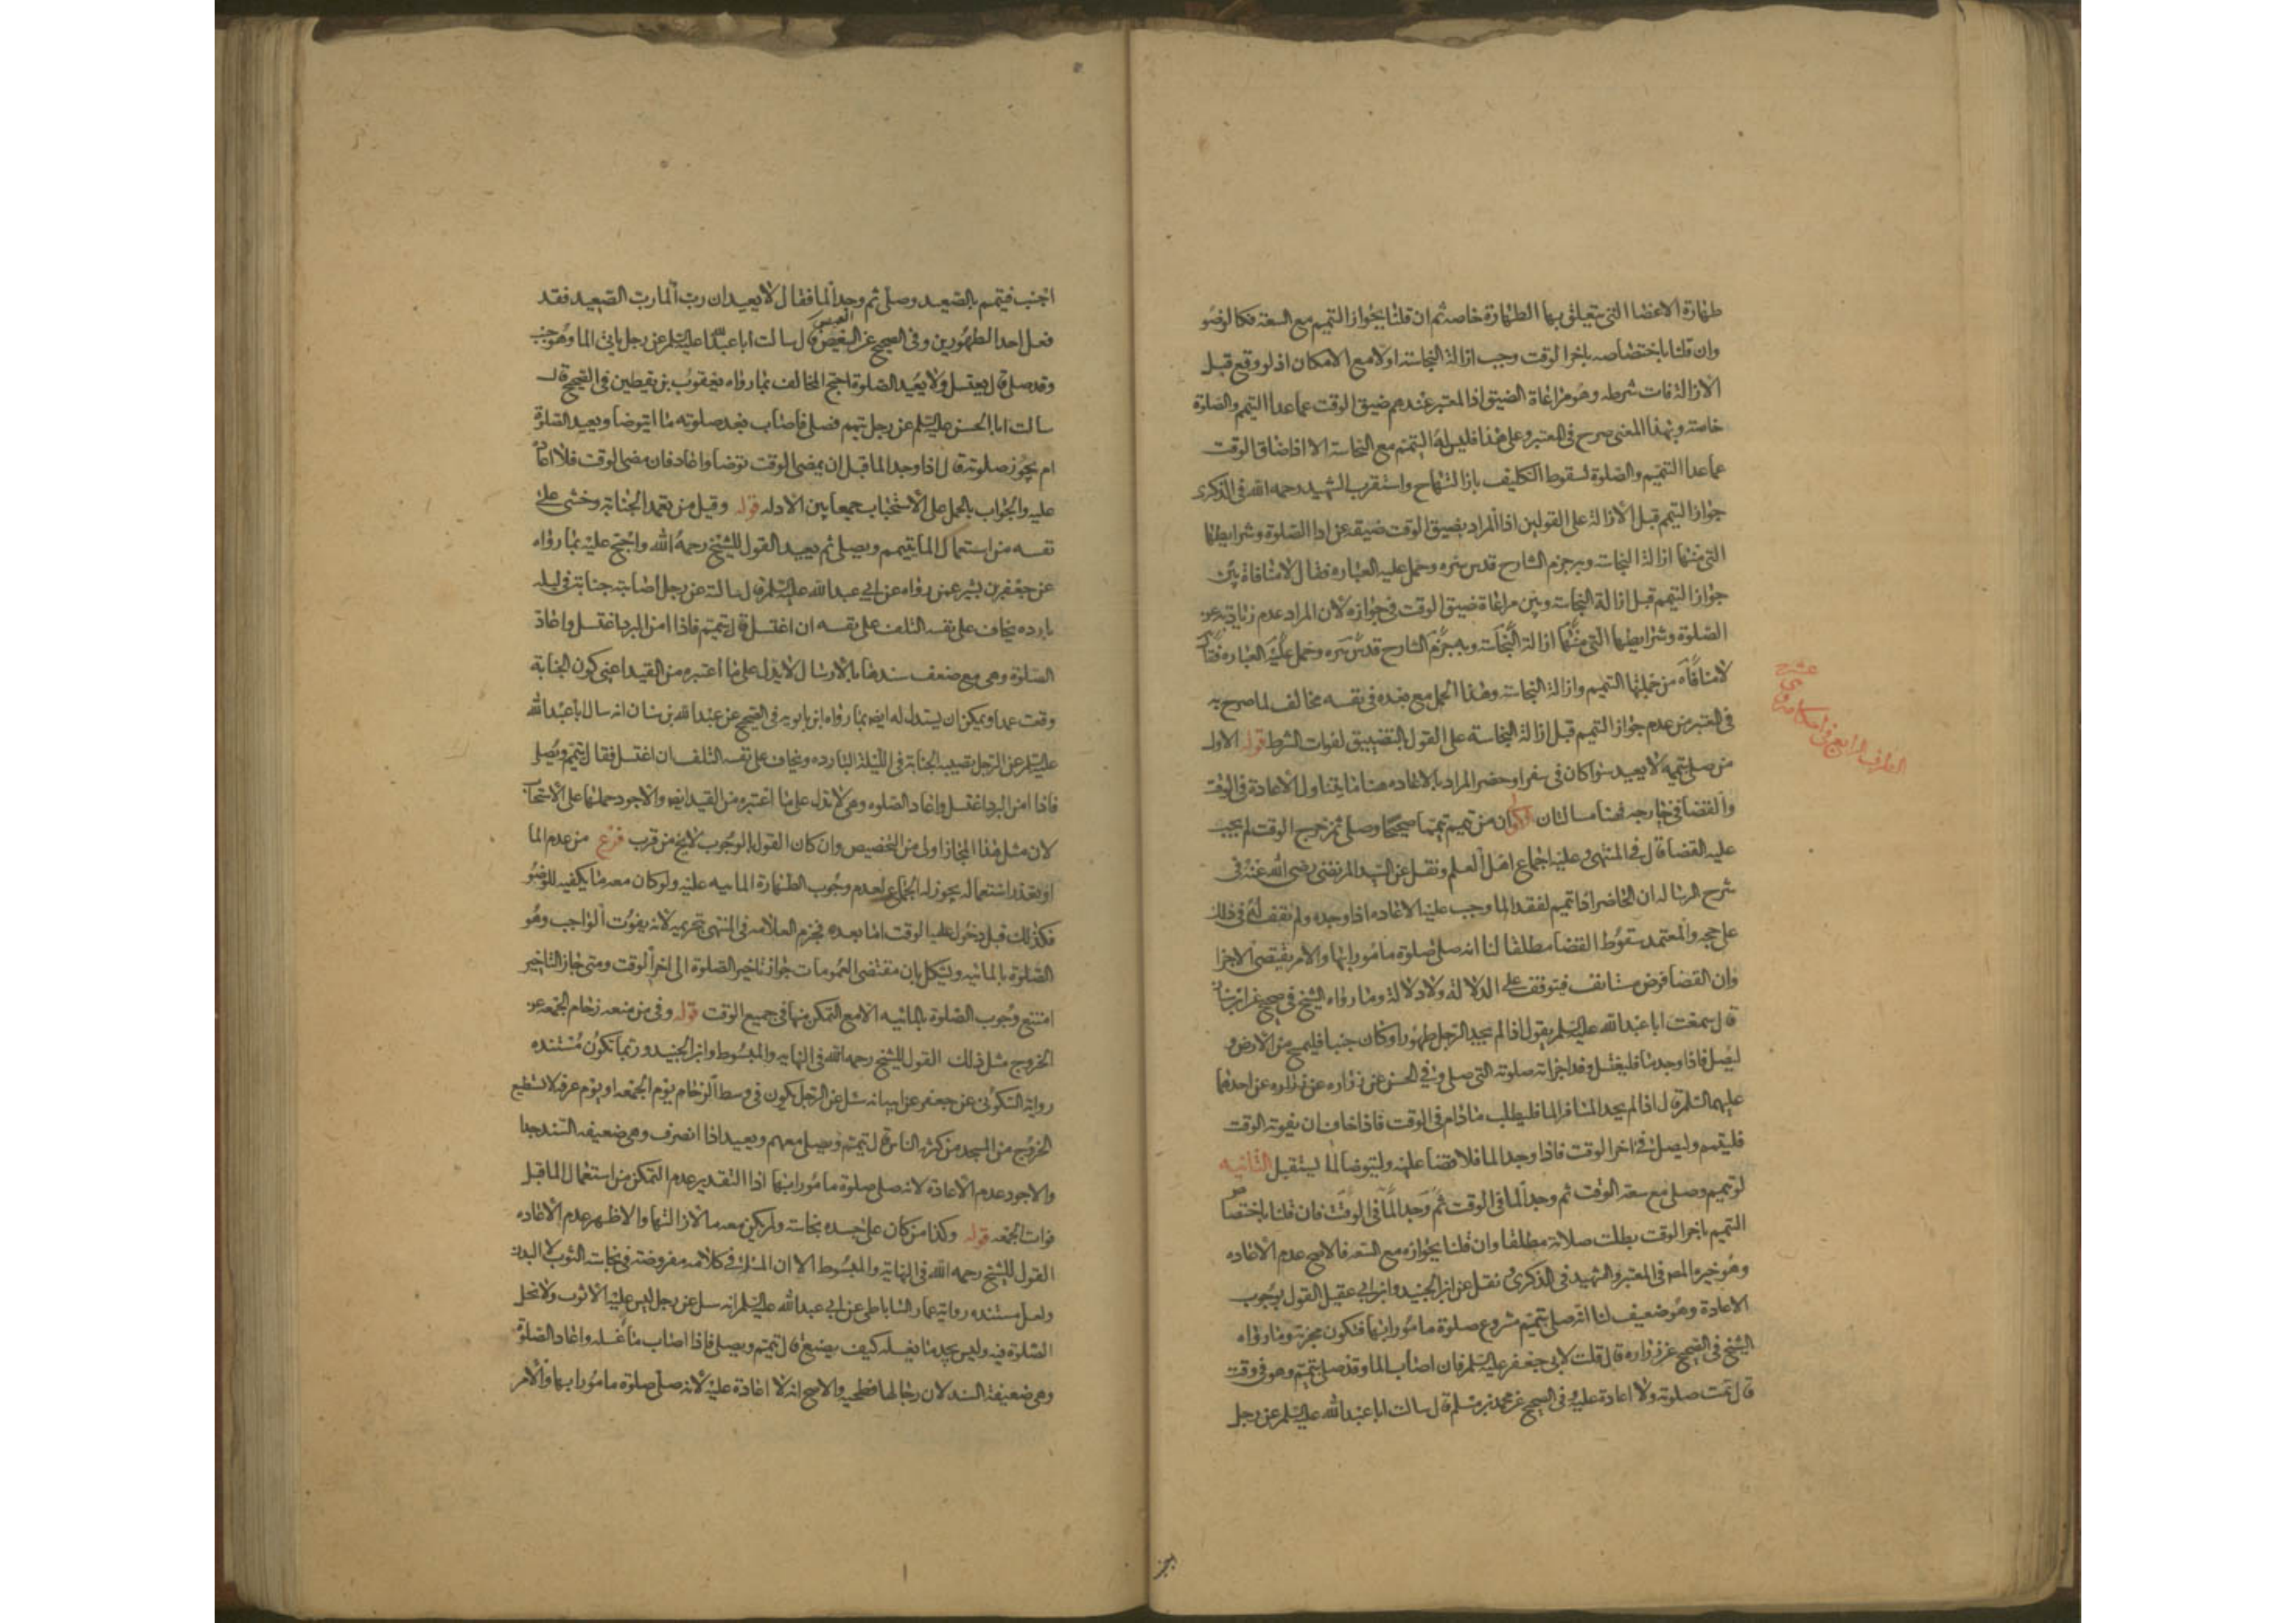 طهارة الاعضا التى يتعلق بها الطهارة خاصه ثم ان قلنا بجواز التيمم مع السعة فكالوضو
وان قلنا باختصاصه باخر الوقت وجب ازالة النجاسة اولا مع الامكان اذ لو وقع قبل
الازالة فات شرطه وهو مراعاة الضيق اذ المعتبر عندهم ضيق الوقت عما عدا التيمم والصلوة
خاصة وبهذا المعنى صرح فى المعتبر وعلى هذا فليس له التيمم مع النجاسة الا اذا ضاق الوقت
عما عدا التيمم والصلوة لسقوط التكليف بازالتها ح واستقرب الشهيد رحمه الله فى الذكرى
جواز التيمم قبل الازالة على القولين اذ المراد بضيق الوقت ضيقه عن ادا الصلوة وشرايطها
التى منها ازالة النجاسة وبه جزم الشارح قدس سره وحمل عليه العباره فقال لا منافاة بين
جواز التيمم قبل ازالة النجاسة وبين مراعاة ضيق الوقت فى جوازه لان المراد عدم زيادته عن
الصلوة وشرايطها التى منها ازالة النجاسة وبه جزم الشارح قدس سره وحمل عليه العباره فقال
لا منافاه من جملتها التيمم وازالة النجاسة وهذا الحمل مع بعده فى نفسه مخالف لما صرح به
فى المعتبر من عدم جواز التيمم قبل ازالة النجاسة على القول بالتضييق لفوات الشرط قوله الاول
من صلى بتيممه لا يعيد سوا كان فى سفر او حضر المراد بالاعاده هنا ما يتناول الاعادة فى الوقت
والقضا فى خارجه فهنا مسالتان الاولى ان من تيمم تيمما صحيحا وصلى ثم خرج الوقت لم يجب
عليه القضا قال فى المنتهى وعليه اجماع اهل العلم ونقل عن السيد المرتضى رضى الله عنه فى
شرح الرسالة ان الحاضر اذا تيمم لفقد الما وجب عليه الاعاده اذا وجده ولم نقف له فى ذلك
على حجه والمعتمد سقوط القضا مطلقا لنا انه صلى صلوة مامورا بها والامر يقتضى الاجزا
وان القضا فرض مستانف فيتوقف على الدلالة ولا دلالة وما رواه الشيخ فى صحيح عن ابن سنان
قال سمعت ابا عبد الله عليه السلم يقول اذا لم يجد الرجل طهورا وكان جنبا فليمسح من الارض و
ليصل فاذا وجد ما فليغتسل وقد اجزاته صلوته التى صلى وفى الحسن عن زراره عن زراره عن احدهما
عليهما السلم قال اذا لم يجد المسافر الما فليطلب ما دام فى الوقت فاذا خاف ان يفوته الوقت
فليتيمم وليصل فى اخر الوقت فاذا وجد الما فلا قضا عليه وليتوضا لما يستقبل الثانيه
لو تيمم وصلى مع سعة الوقت ثم وجد الما فى الوقت ثم وجد الما فى الوقت فان قلنا باختصاص
التيمم باخر الوقت بطلت صلاته مطلقا وان قلنا بجوازه مع السعه فالاصح عدم الاعاده
وهو خيره المص فى المعتبر والشهيد فى الذكرى ونقل عن ابن الجنيد وابن ابى عقيل القول بوجوب
الاعادة وهو ضعيف لنا انه صلى بتيمم مشروع صلوة مامورا بها فتكون مجزية وما رواه
الشيخ فى الصحيح عن زراره قال قلت لابى جعفر عليه السلم فان اصاب الما وقد صلى بتيمم وهو فى وقت
قال تمت صلوته ولا اعادة عليه وفى الصحيح عن محمد بن مسلم قال سالت ابا عبد الله عليه السلم عن رجل
اجنب فتيمم بالصعيد وصلى ثم وجد الما فقال لا يعيد ان رب الما رب الصعيد فقد
فعل احد الطهورين وفى الصحيح عن العيص قال سالت ابا عبد الله عليه السلم عن رجل ياتى الما وهو جنب
وقد صلى قال يغتسل ولا يعيد الصلوة احتج المخالف بما رواه يعقوب بن يقطين فى الصحيح قال
سالت ابا الحسن عليه السلم عن رجل تيمم فصلى فاصاب بعد صلوته ما ايتوضا ويعيد الصلوة
ام يجوز صلوته قال اذا وجد الما قبل ان يمضى الوقت توضا واعاد فان مضى الوقت فلا اعادة
عليه والجواب بالحمل على الاستحباب جمعا بين الادله قوله وقيل من تعمد الجنابة وخشى على
نفسه من استعمال الما يتيمم ويصلى ثم يعيد القول للشيخ رحمه الله واحتج عليه بما رواه
عن جعفر بن بشير عمن رواه عن ابى عبد الله عليه السلم قال سالته عن رجل اصابته جنابة فى ليلة
بارده يخاف على نفسه التلف على نفسه ان اغتسل قال يتيمم فاذا امن البرد اغتسل واعاد
الصلوة وهى مع ضعف سندها بالارسال لا يدل على ما اعتبره من القيد اعنى كون الجنابة
وقعت عمدا ويمكن ان يستدل له ايضا بما رواه ابن بابويه فى الصحيح عن عبد الله بن سنان انه سال ابا عبد الله
عليه السلم عن الرجل تصيبه الجنابة فى الليلة البارده ويخاف على نفسه التلف ان اغتسل فقال يتيمم ويصلى
فاذا امن البرد اغتسل واعاد الصلوه وهى لا تدل على ما اعتبره من القيد ايضا والاجود حملها على الاستحباب
لان مثل هذا المجاز اولى من التخصيص وان كان القول بالوجوب لا يخ من قرب فرع من عدم الما
او تعذر استعماله يجوز له الجماع لعدم وجوب الطهارة المائيه عليه ولو كان معه ما يكفيه للوضو
فكذلك قبل دخول الوقت اما بعده فجزم العلامه فى المنتهى بتحريمه لانه يفوت الواجب وهو
الصلوة بالمائيه ويشكل بان مقتضى العمومات جواز تاخير الصلوة الى اخر الوقت ومتى جاز التاخير
امتنع وجوب الصلوة بالمائيه الا مع التمكن منها فى جميع الوقت قوله وفى من منعه زحام الجمعه عن
الخروج مثل ذلك القول للشيخ رحمه الله فى النهايه والمبسوط وابن الجنيد وربما تكون مستنده
رواية السكونى عن جعفر عن ابيه انه سئل عن الرجل يكون فى وسط الزحام يوم الجمعه او يوم عرفه لا يستطيع
الخروج من المسجد من كثرة الناس قال يتيمم ويصلى معهم ويعيد اذا انصرف وهى ضعيفه السند جدا
والاجود عدم الاعادة لانه صلى صلوة مامورا بها اذ التقدير عدم التمكن من استعمال الما قبل
فوات الجمعه قوله وكذا من كان على جسده نجاسة ولم يكن معه ما لازالتها والاظهر عدم الاعاده
القول للشيخ رحمه الله فى النهاية والمبسوط الا ان المسئلة فى كلامه مفروضة فى نجاسة الثوب لا البدن
ولعل مستنده رواية عمار الساباطى عن ابى عبد الله عليه السلم انه سئل عن رجل ليس عليه الا ثوب ولا تحل
الصلوة فيه وليس يجد ما يغسله كيف يصنع قال يتيمم ويصلى فاذا اصاب ما غسله واعاد الصلوة
وهى ضعيفة السند لان رجالها فطحيه والاصح انه لا اعادة عليه لانه صلى صلوة مامورا بها والامر